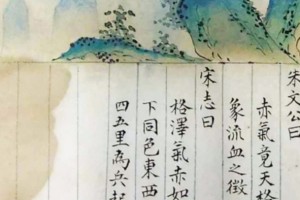 宋文公曰
赤氣竟天格
象流血之徵
宋志曰
格澤氣赤如
下同色東西
四五里為兵起